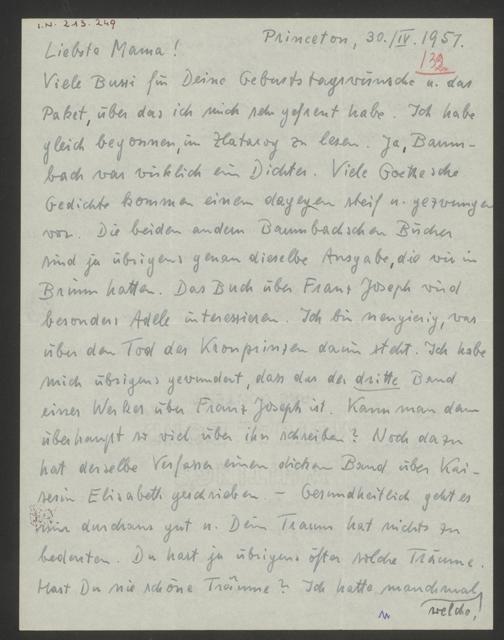 I.N. 213.249
Princeton, 30./IV. 1957.
139
Liebste Mama!
Viele Bussi für Deine Geburtstagswünsche u. das
Paket, über das ich mich sehr gefreut habe. Ich habe
gleich begonnen, im Zlatarog zu lesen. Ja, Baum-
bach war wirklich ein Dichter. Viele Goethesche
Gedichte kommen einem dagegen steif u. gezwungen
vor. Die beiden andern Baumbachschen Bücher
sind ja übrigens genau dieselbe Ausgabe, die wir in
Brünn hatten. Das Buch über Franz Joseph wird
besonders Adele interessieren. Ich bin neugierig, was
über den Tod des Kronprinzen darin steht. Ich habe
mich übrigens gewundert, dass das der dritte Band
eines Werkes über Franz Joseph ist. Kann man denn
überhaupt so viel über ihn schreiben? Noch dazu
hat derselbe Verfasser einen dicken Band über Kai-
serin Elisabeth geschrieben. – Gesundheitlich geht es
mir durchaus gut u. Dein Traum hat nichts zu
bedeuten. Du hast ja übrigens öfter solche Träume.
Hast Du nie schöne Träume? Ich hatte manchmal
welche!